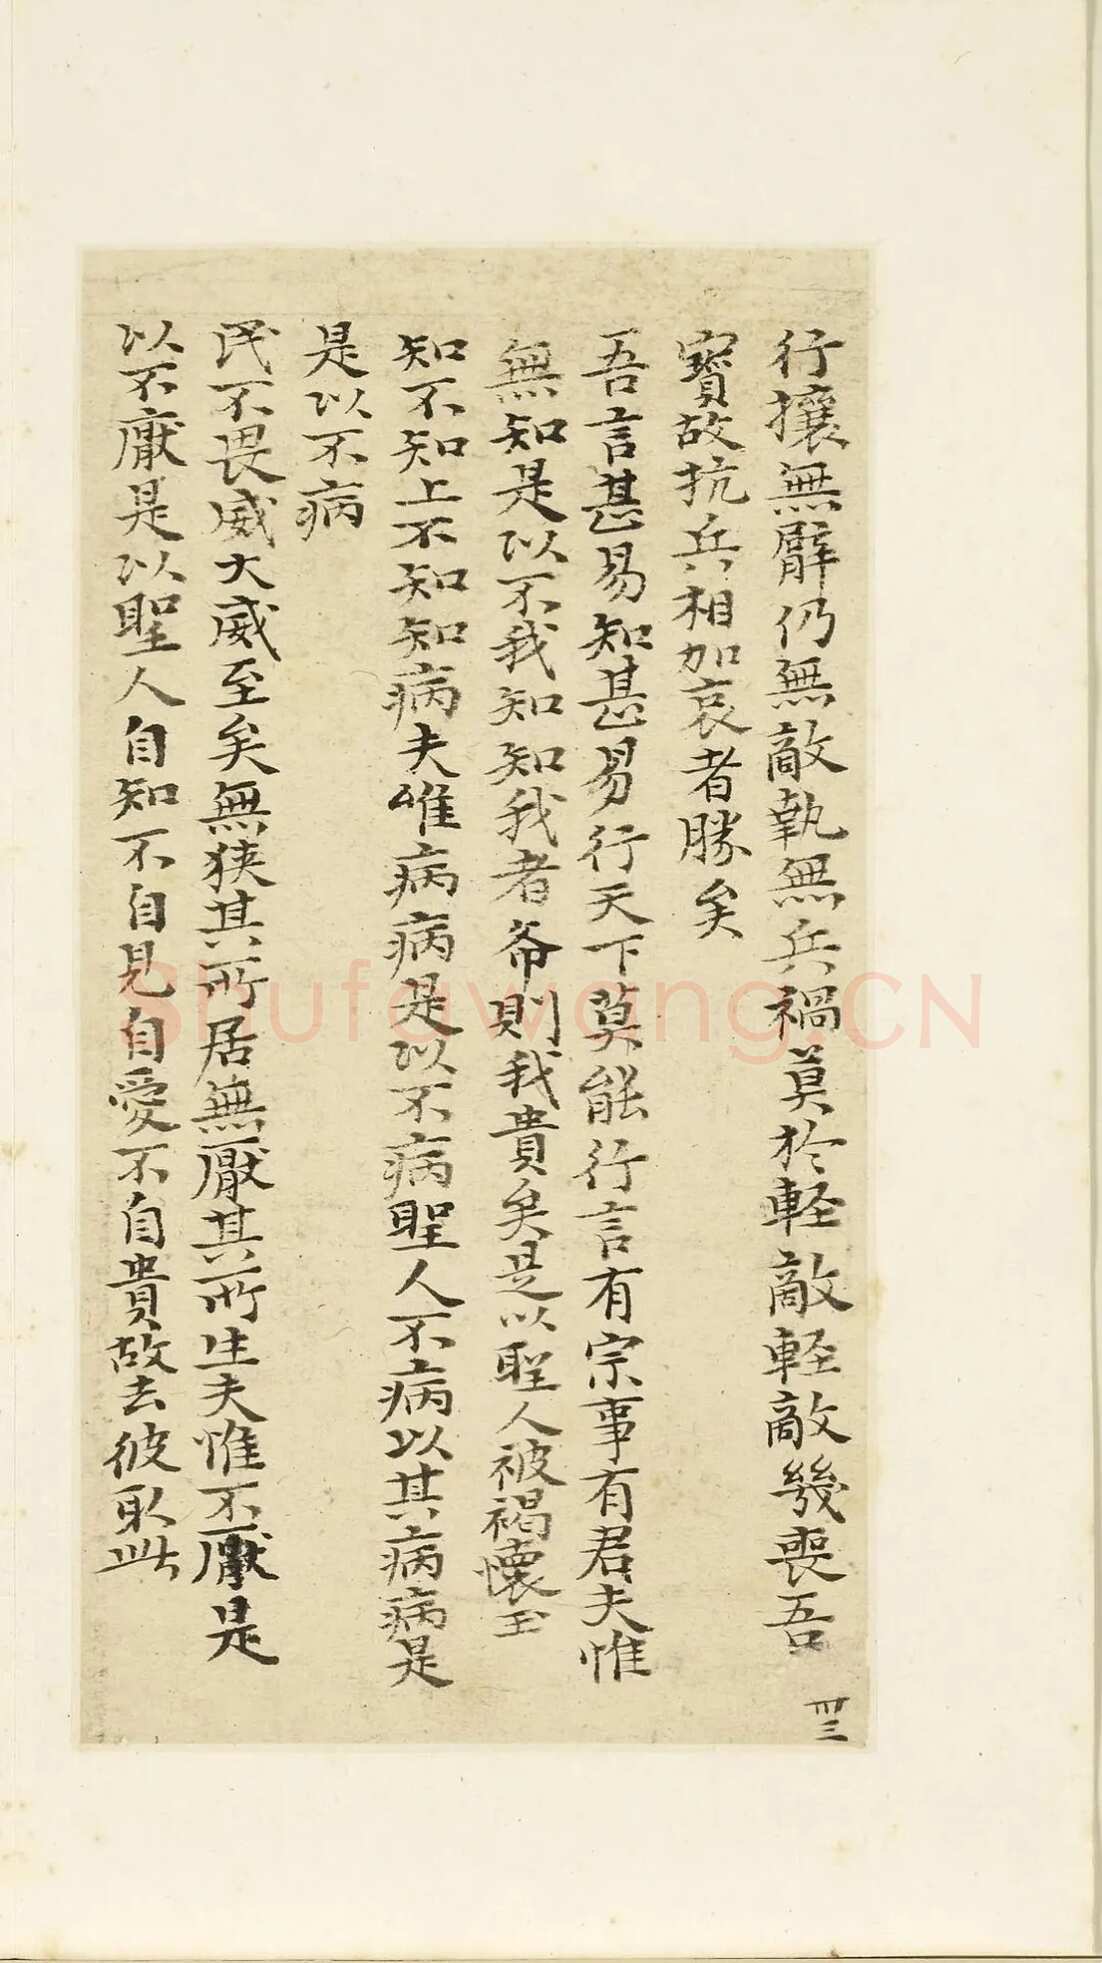 行攘無臂仍無敵執無兵禍莫於軽敵軽敵幾喪吾
寳故抗兵相加哀者勝矣
吾言甚易知甚易行天下莫能行言有宗事有君夫惟
無知是以不我知知我者希則我貴矣是以聖人被褐懐玉
知不知上不知知病夫唯病病是以不病聖人不病以其病病是
是以不病
民不畏威大威至矣無狭其所居無厭其所生夫惟不厭是
以不厭是以聖人自知不自見自愛不自貴故去彼取此
卌三
Shufawang.CN